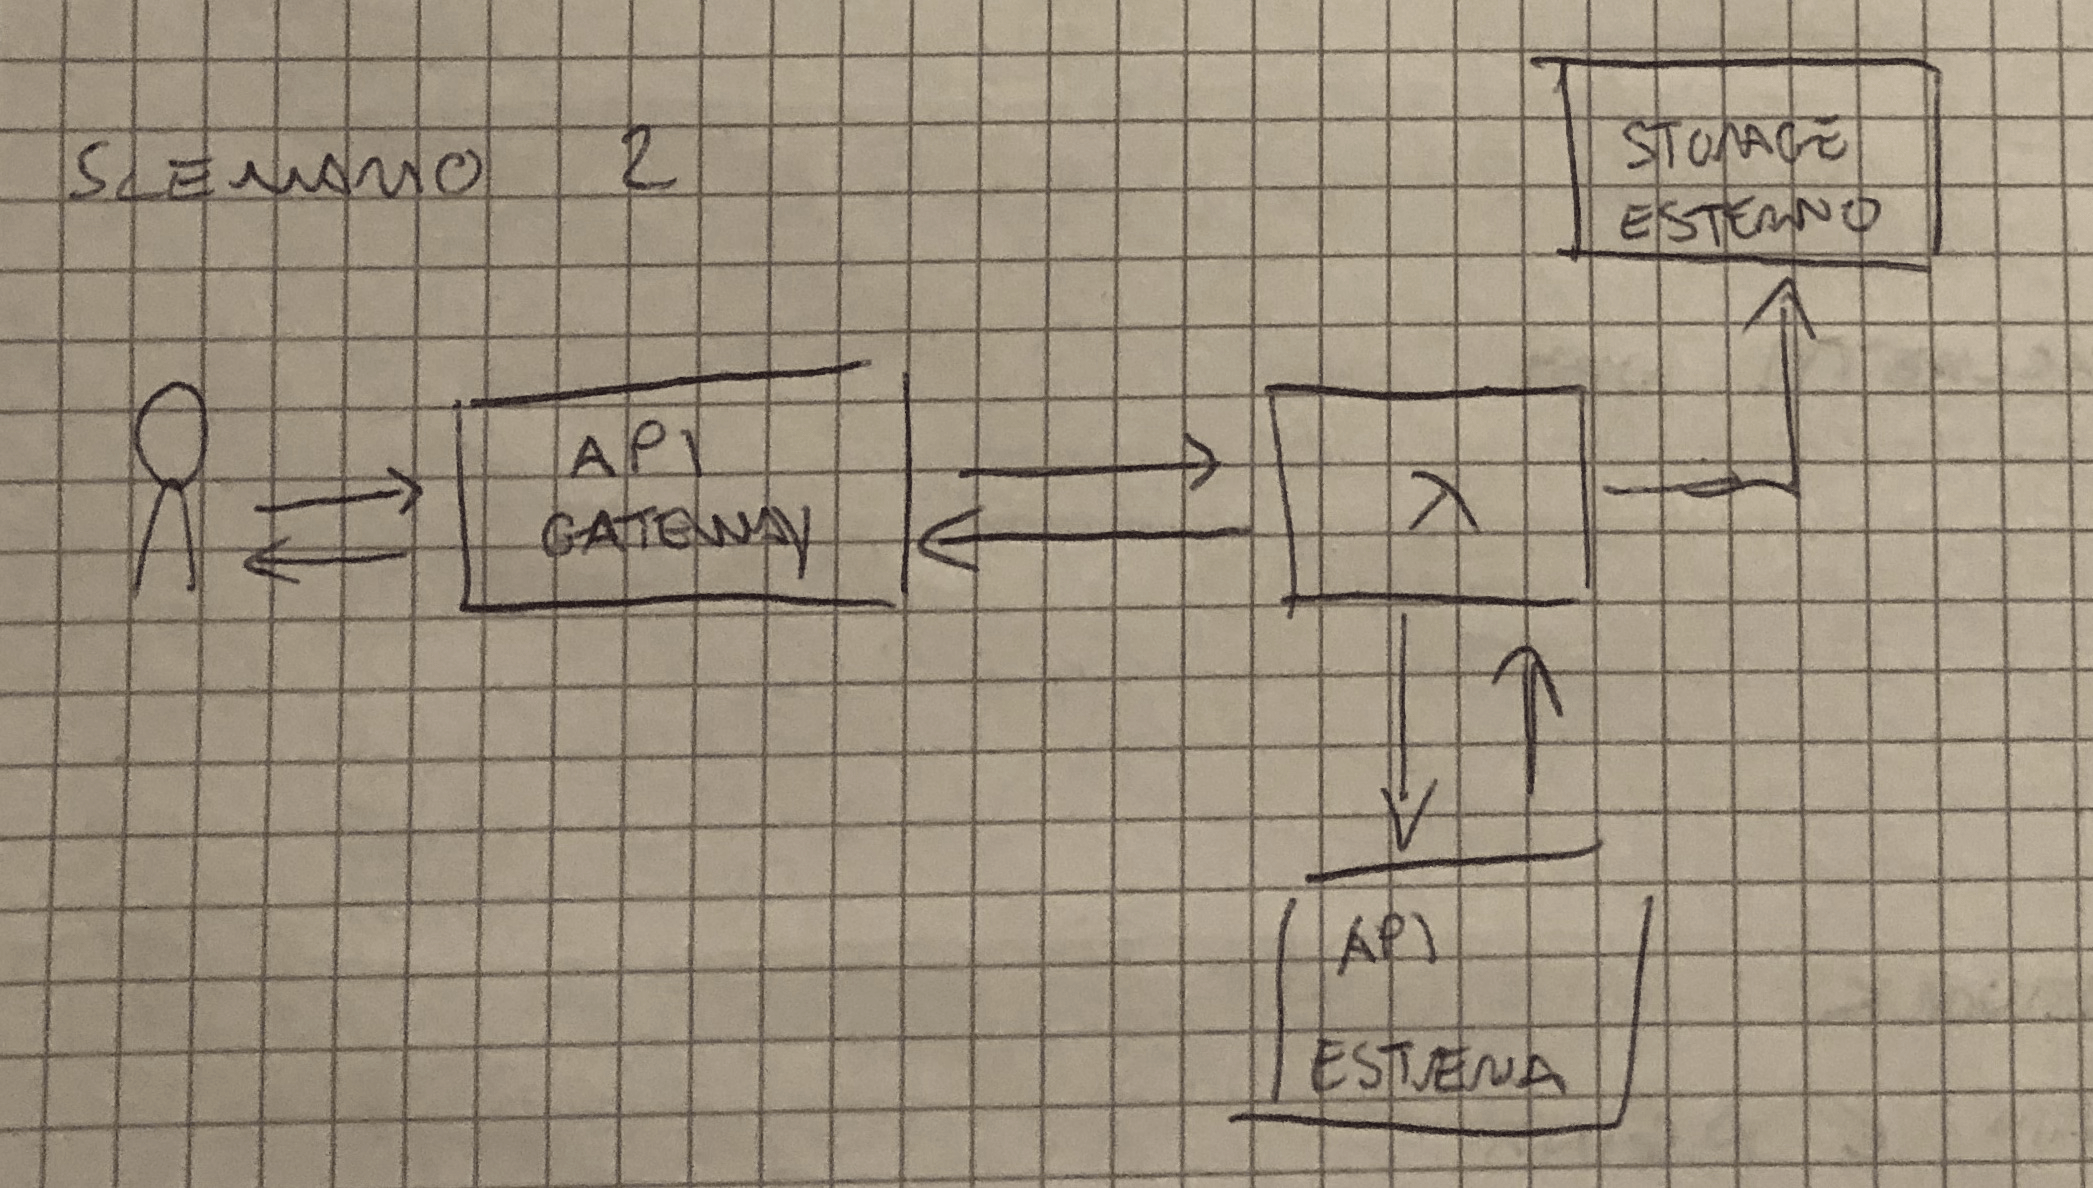 SCENARIO 2
STORAGE
ESTERNO
API
GATEWAY
λ
API
ESTERNA